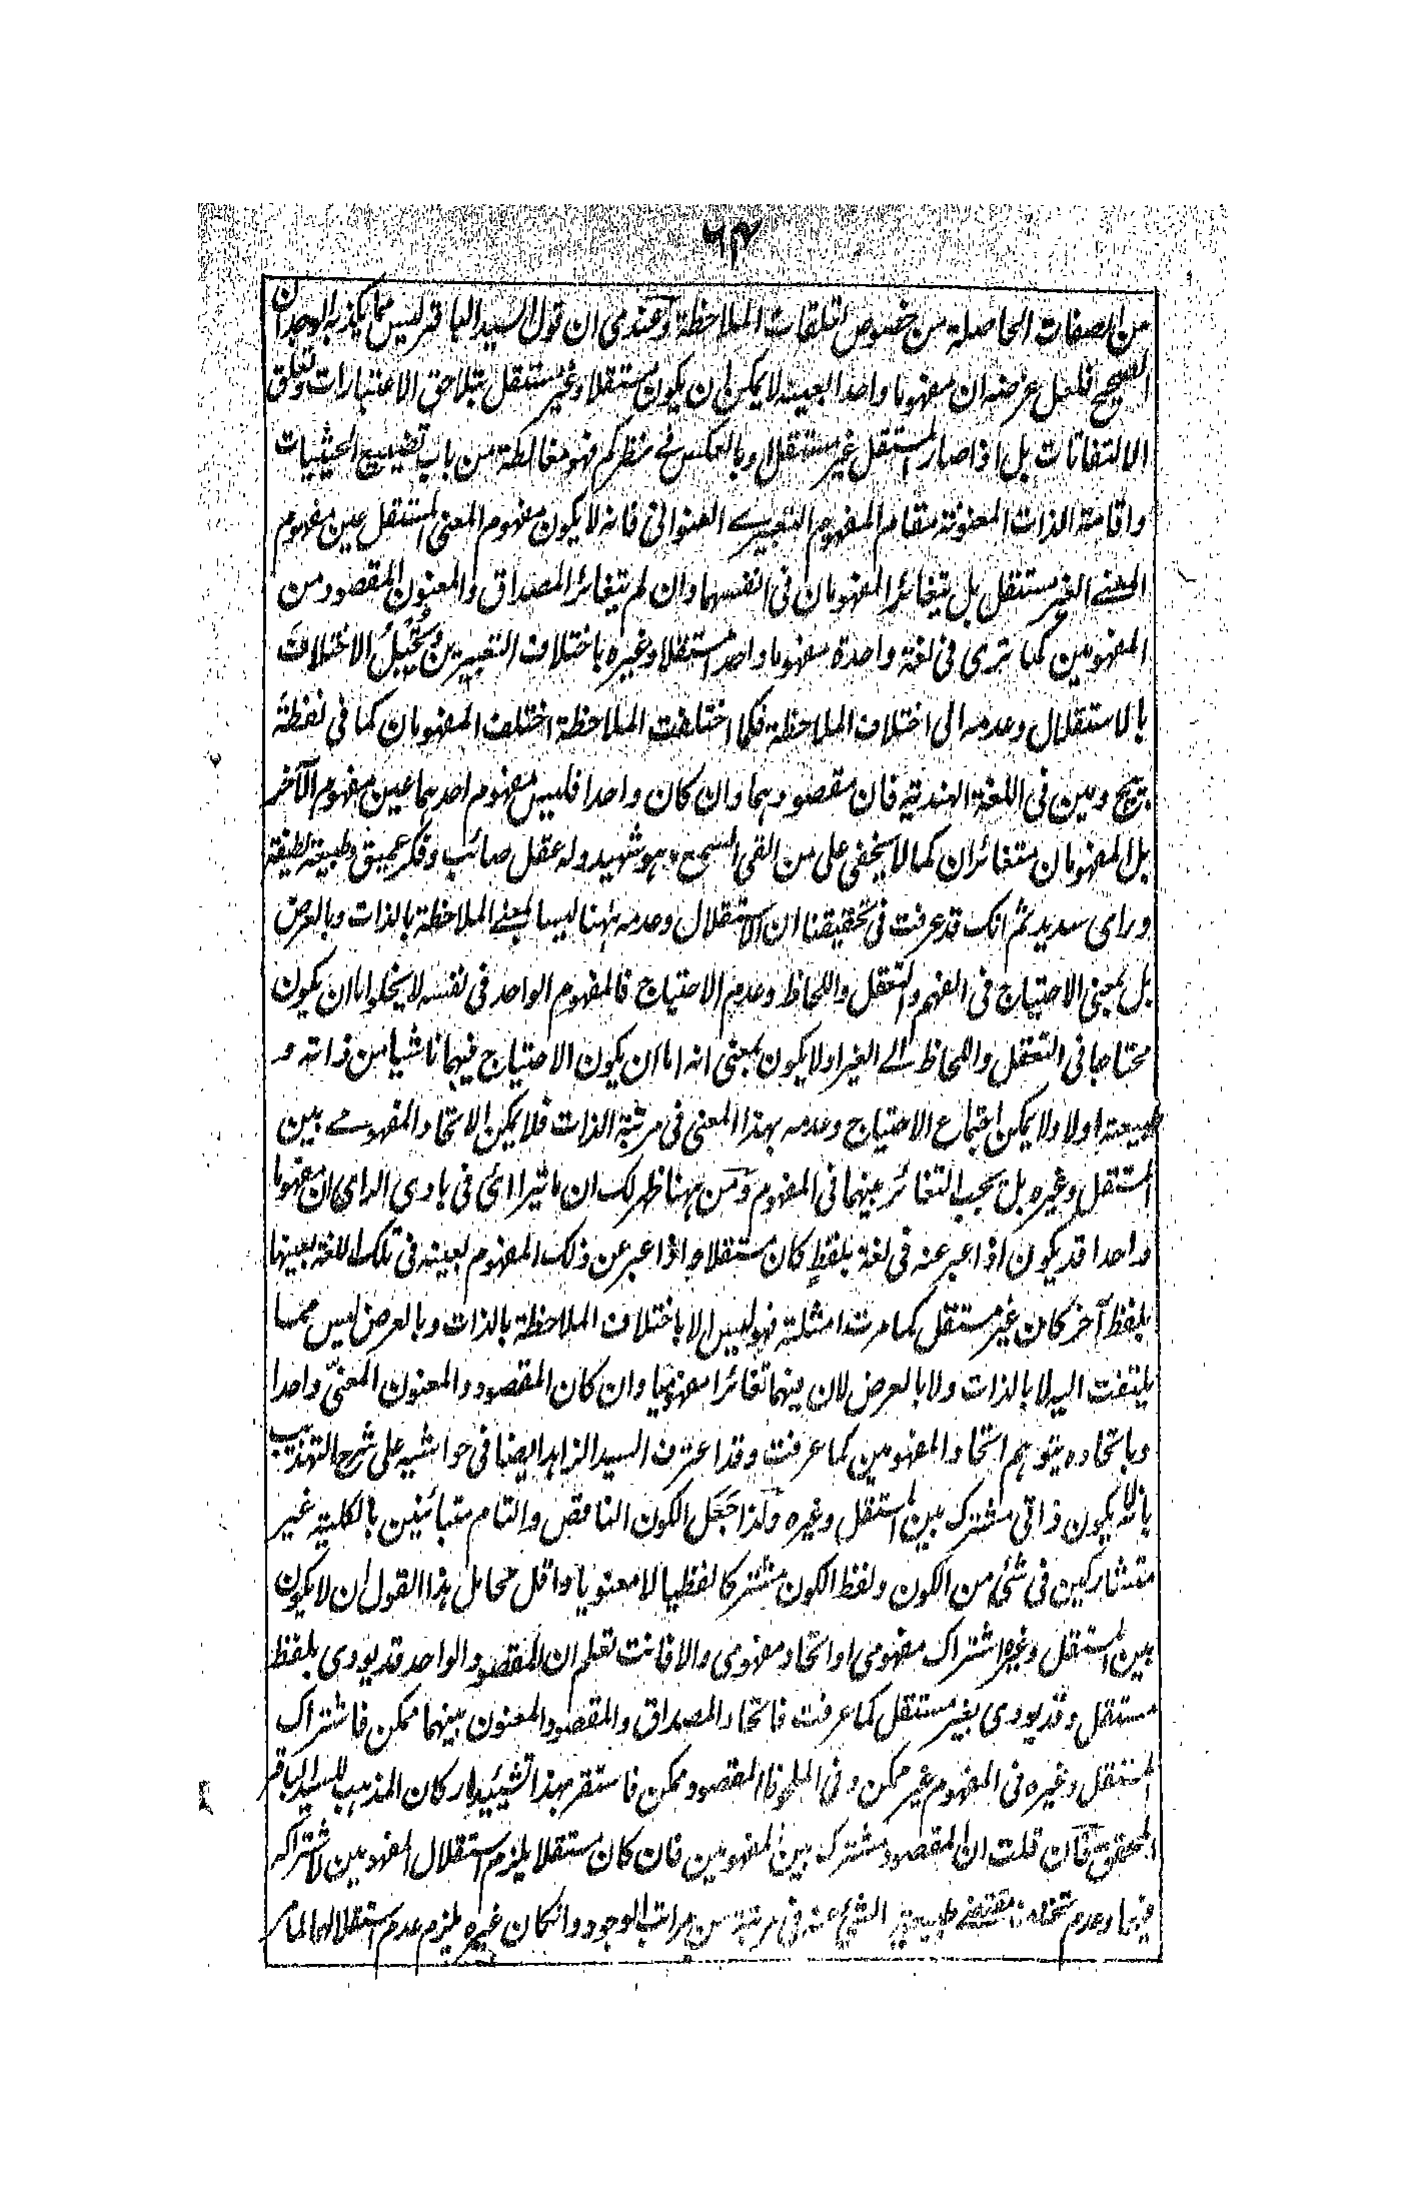 ٦٤
من الصفات الحاصلة من خصوص تلقات الملاحظة وعندى ان قول السيد الباقر ليس مما يكذبه الوجدان
الصحيح فلعل غرضه ان مفهوما واحدا بعينه لا يمكن ان يكون مستقلا وغير مستقل بتلاحق الاعتبارات وتعلق
الالتفاتات بل اذا صار المستقل غير مستقل او بالعكس فى نظركم فهو مغالطة من باب تضييع الحيثيات
واقامة الذات المعنونة مقام المفهوم التعبيرے العنوانى فانه لا يكون مفهوم المعنى المستقل عين مفهوم
المعنے الغير مستقل بل يتغائر المفهومان فى انفسهما وان لم يتغائر المصداق والمعنون المقصود من
المفهومين كما ترى فى لغة واحدة مفهوما واحدا مستقلا وغيره باختلاف التعبيرين الاختلاف
بالاستقلال وعدمه الى اختلاف الملاحظة فكما اختلفت الملاحظة اختلف المفهومان كما فى لفظة
بيچ وبين فى اللغة الهندية فان مقصودهما وان كان واحدا فليس مفهوم احدهما عين مفهوم الآخر
بل المفهومان متغائران كما لا يخفى على من القى السمع وهو شهيد وله عقل صائب وفكر عميق وطبيعة لطيفة
وراى سديد ثم انك قد عرفت فى تحقيقنا ان الاستقلال وعدمه ههنا ليسا بمعنے الملاحظة بالذات وبالعرض
بل بمعنى الاحتياج فى الفهم والتعقل واللحاظ وعدم الاحتياج فالمفهوم الواحد فى نفسه لا يخلو اما ان يكون
محتاجا فى التعقل واللحاظ الے الغير اولا يكون بمعنى انه اما ان يكون الاحتياج فيهما ناشيا من ذاته و
طبيعته اولا ولا يمكن اجتماع الاحتياج وعدمه بهذا المعنى فى مرتبة الذات فلا يمكن الاتحاد المفهومے بين
المستقل وغيره بل يجب التغائر بينهما فى المفهوم ومن ههنا ظهر لك ان ما يترا ائى فى بادى الراى ان مفهوما
واحدا قد يكون اذا عبر عنه فى لغة بلفظ كان مستقلا واذا عبر عن ذلك المفهوم بعينه فى تلك اللغة بعينها
بلفظ آخر كان غير مستقل كما مرت امثلته فهو ليس الا باختلاف الملاحظة بالذات وبالعرض ليس مما
يلتفت اليه لا بالذات ولا بالعرض لان بينهما تغائرا مفهوميا وان كان المقصود والمعنون المعنىّ واحدا
وباتحاده يتوهم اتحاد المفهومين كما عرفت وقد اعترف السيد الزاهد ايضا فى حواشيه على شرح التهذيب
بانه لا يكون ذاتى مشترك بين المستقل وغيره ولذا جعل الكون الناقص والتام متبائنين بالكلية غير
متشاركين فى شئ من الكون ولفظ الكون مشتركا لفظيا لا معنويا واقل محامل هذا القول ان لا يكون
بين المستقل وغيره اشتراك مفهومى او اتحاد مفهومى والا فانت تعلم ان المقصود الواحد قد يودى بلفظ
مستقل وقد يودى بغير مستقل كما عرفت فاتحاد المصداق والمقصود والمعنون بينهما ممكن فاشتراك
المستقل وغيره فى المفهوم غير ممكن وفى الملحوظ المقصود ممكن فاستقر بهذا تشييد اركان المذهب للسيد الباقر
المحقق فان قلت ان المقصود مشترك بين المفهومين فان كان مستقلا يلزم استقلال المفهومين لاشتراكه
فيهما وعدم مقتضے طبيعة الشئ عنه فى مرتبة من مراتب الوجود وان كان غيره يلزم عدم استقلالهما لما مر